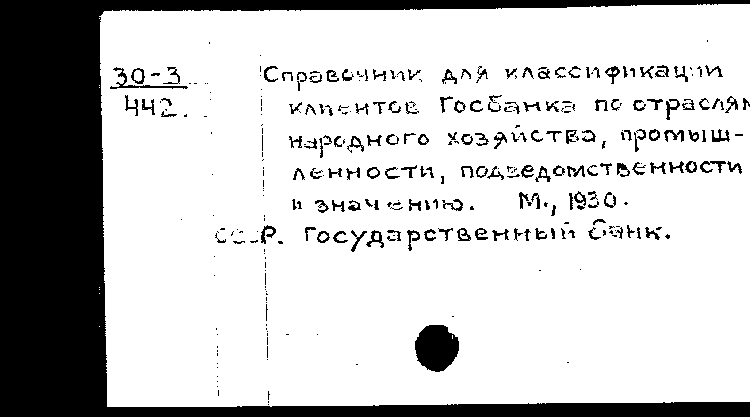 30-3
442.
Справочник для классификации
клиентов Госбанка по отраслям
народного хозяйства, промыш-
ленности, подведомственности
и значению. М., 1930.
СССР. Государственный банк.